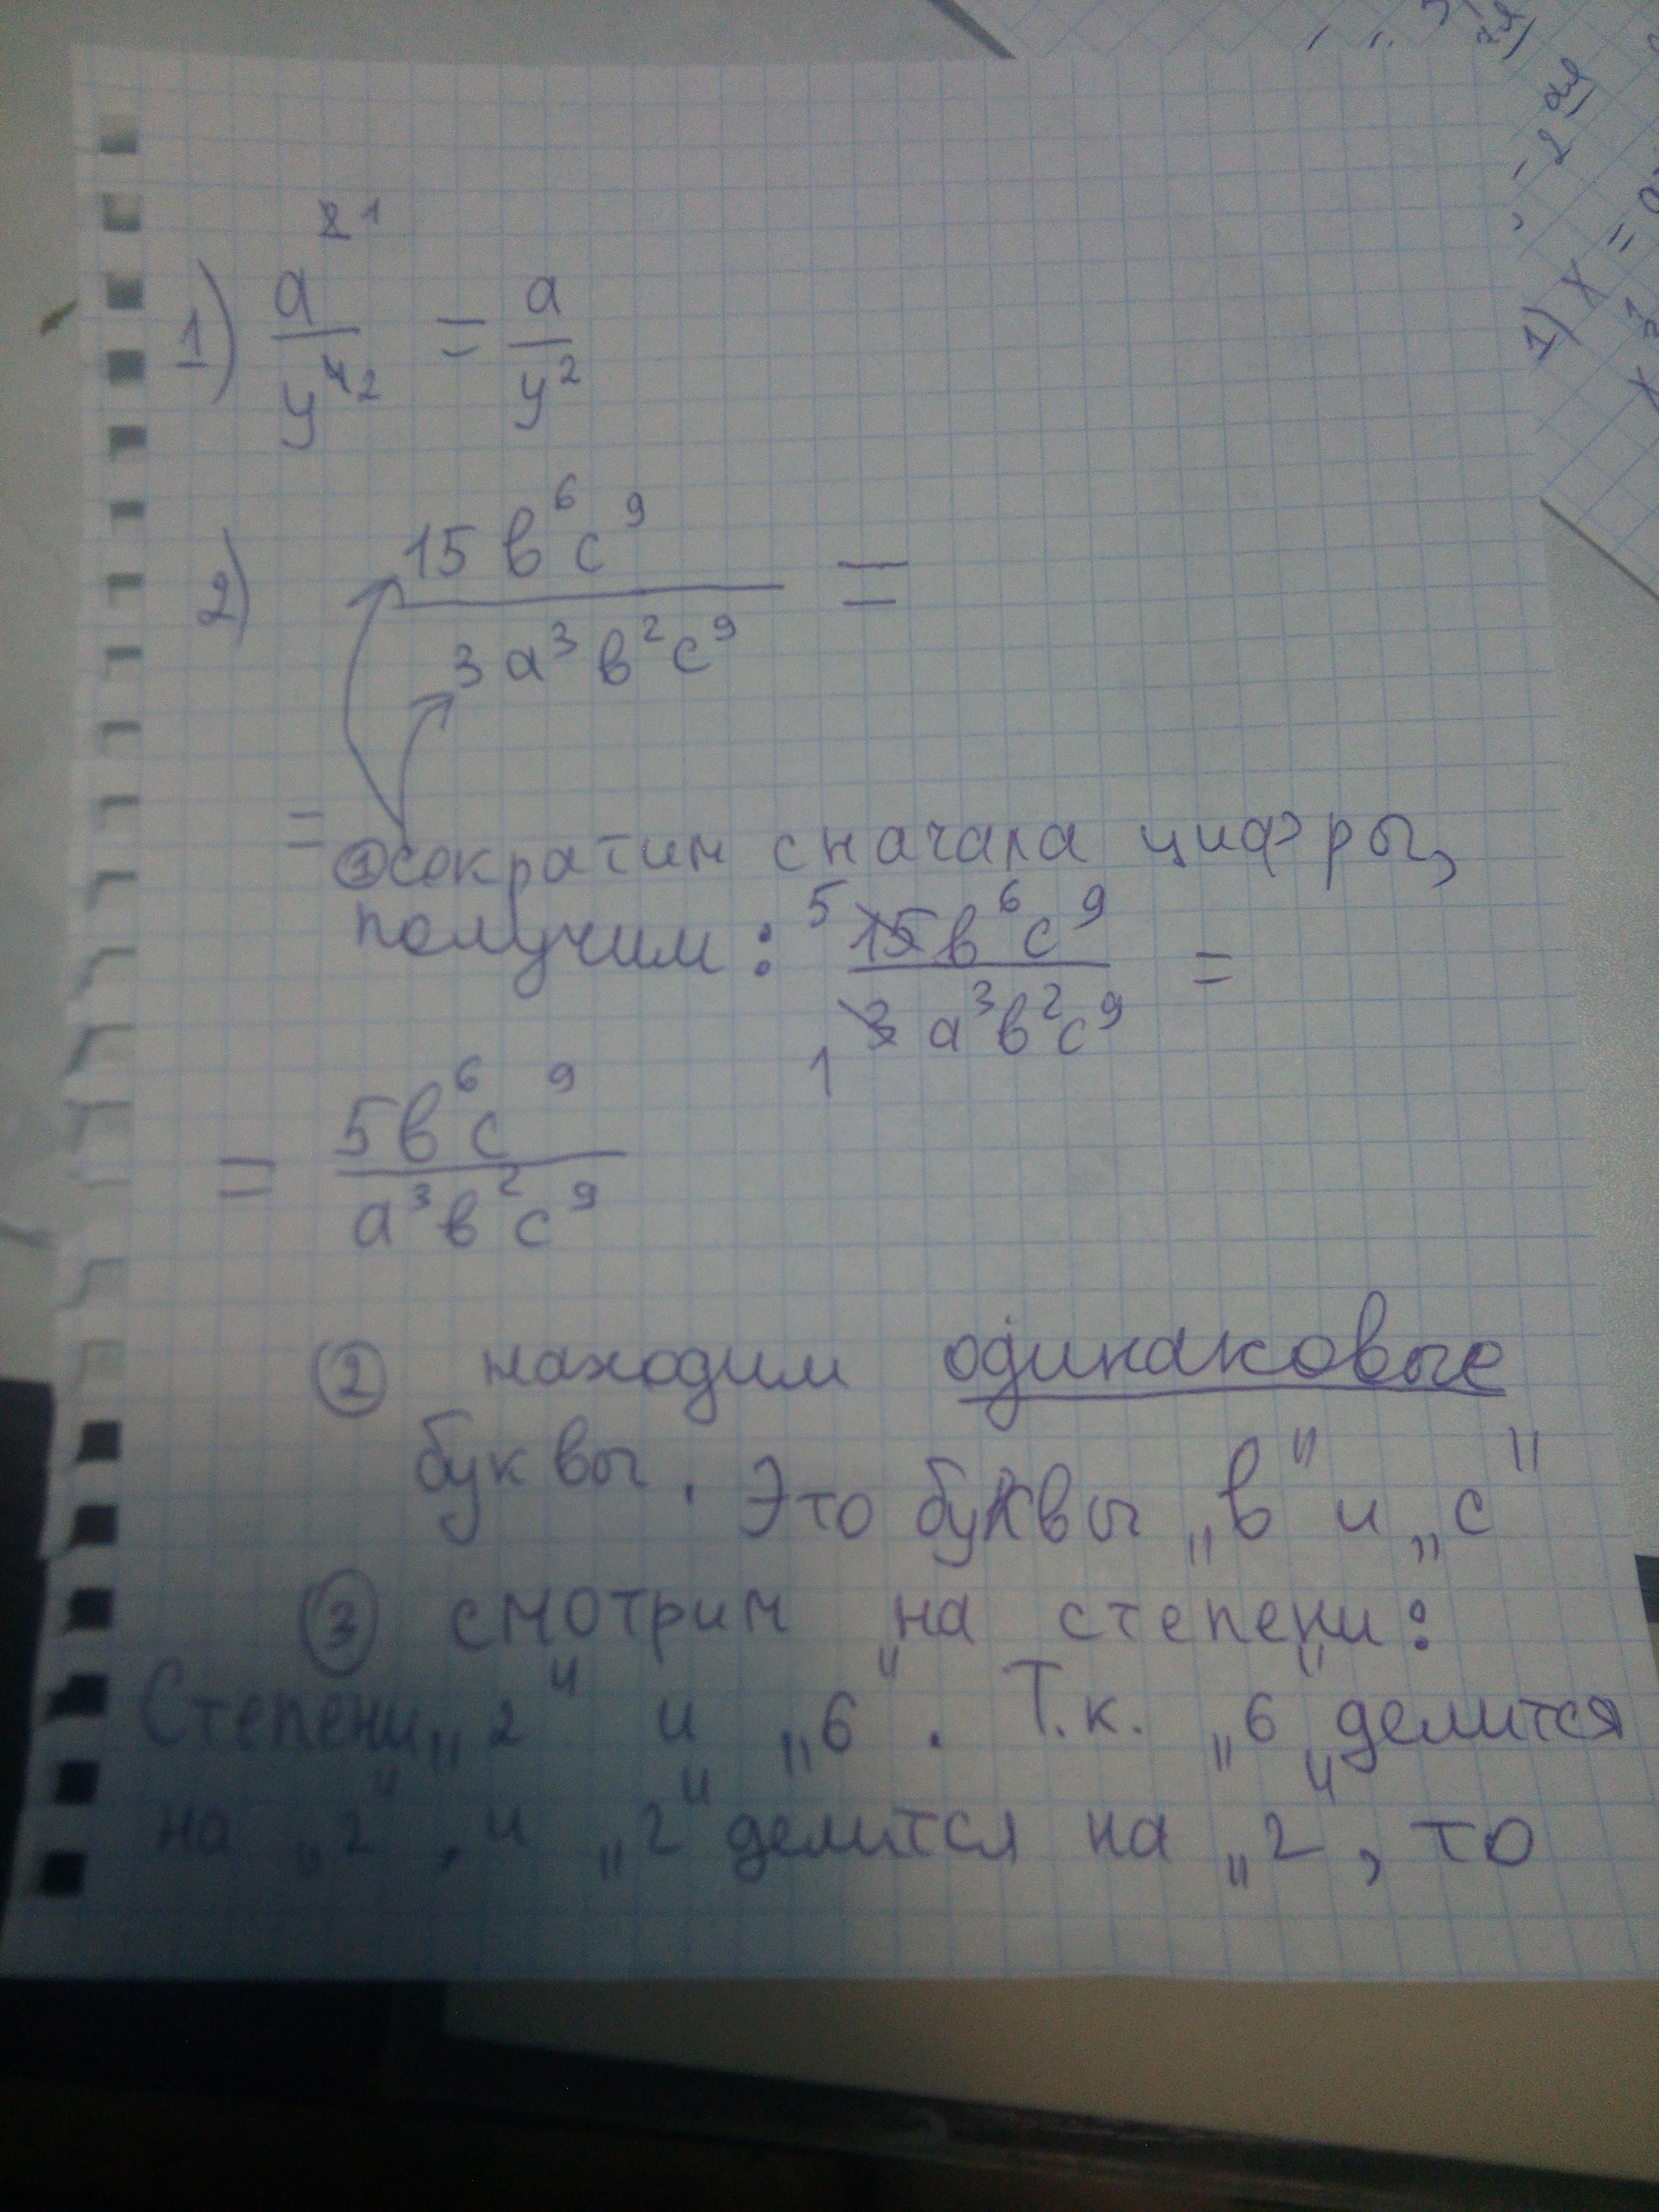 1) a^2̶ 1 / y^4̶ 2 = a / y^2
2) 15 в^6 c^9 / 3 a^3 в^2 c^9 =
= ① сократим сначала цифры,
получим: 5 1̶5̶ в^6 c^9 / 1 3̶ a^3 в^2 c^9 =
= 5 в^6 c^9 / a^3 в^2 c^9
② находим одинаковые
буквы. Это буквы „в" и „с"
③ смотрим на степени:
Степени „2" и „6". Т.к. „6" делится
на „2", и „2" делится на „2", то